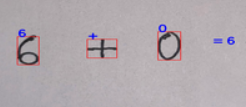 6 + 0 = 6
6 + 0